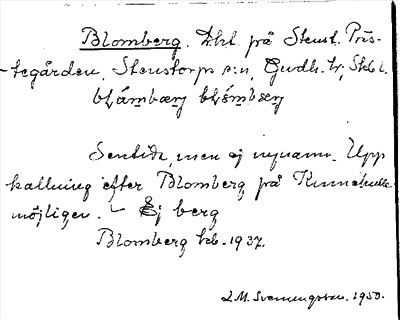 Blomberg. Lht. på Stenst. Präs-
tegården, Stenstorps s:n, Gudh. hr, Skbl.
blǻmbærj blǿmbærj
Sentida, men ej nynamn. Upp
kallning efter Blomberg på Kinnekulle
möjligen. – Ej berg
Blomberg hb. 1937.
L.M. Svenungsson. 1950.